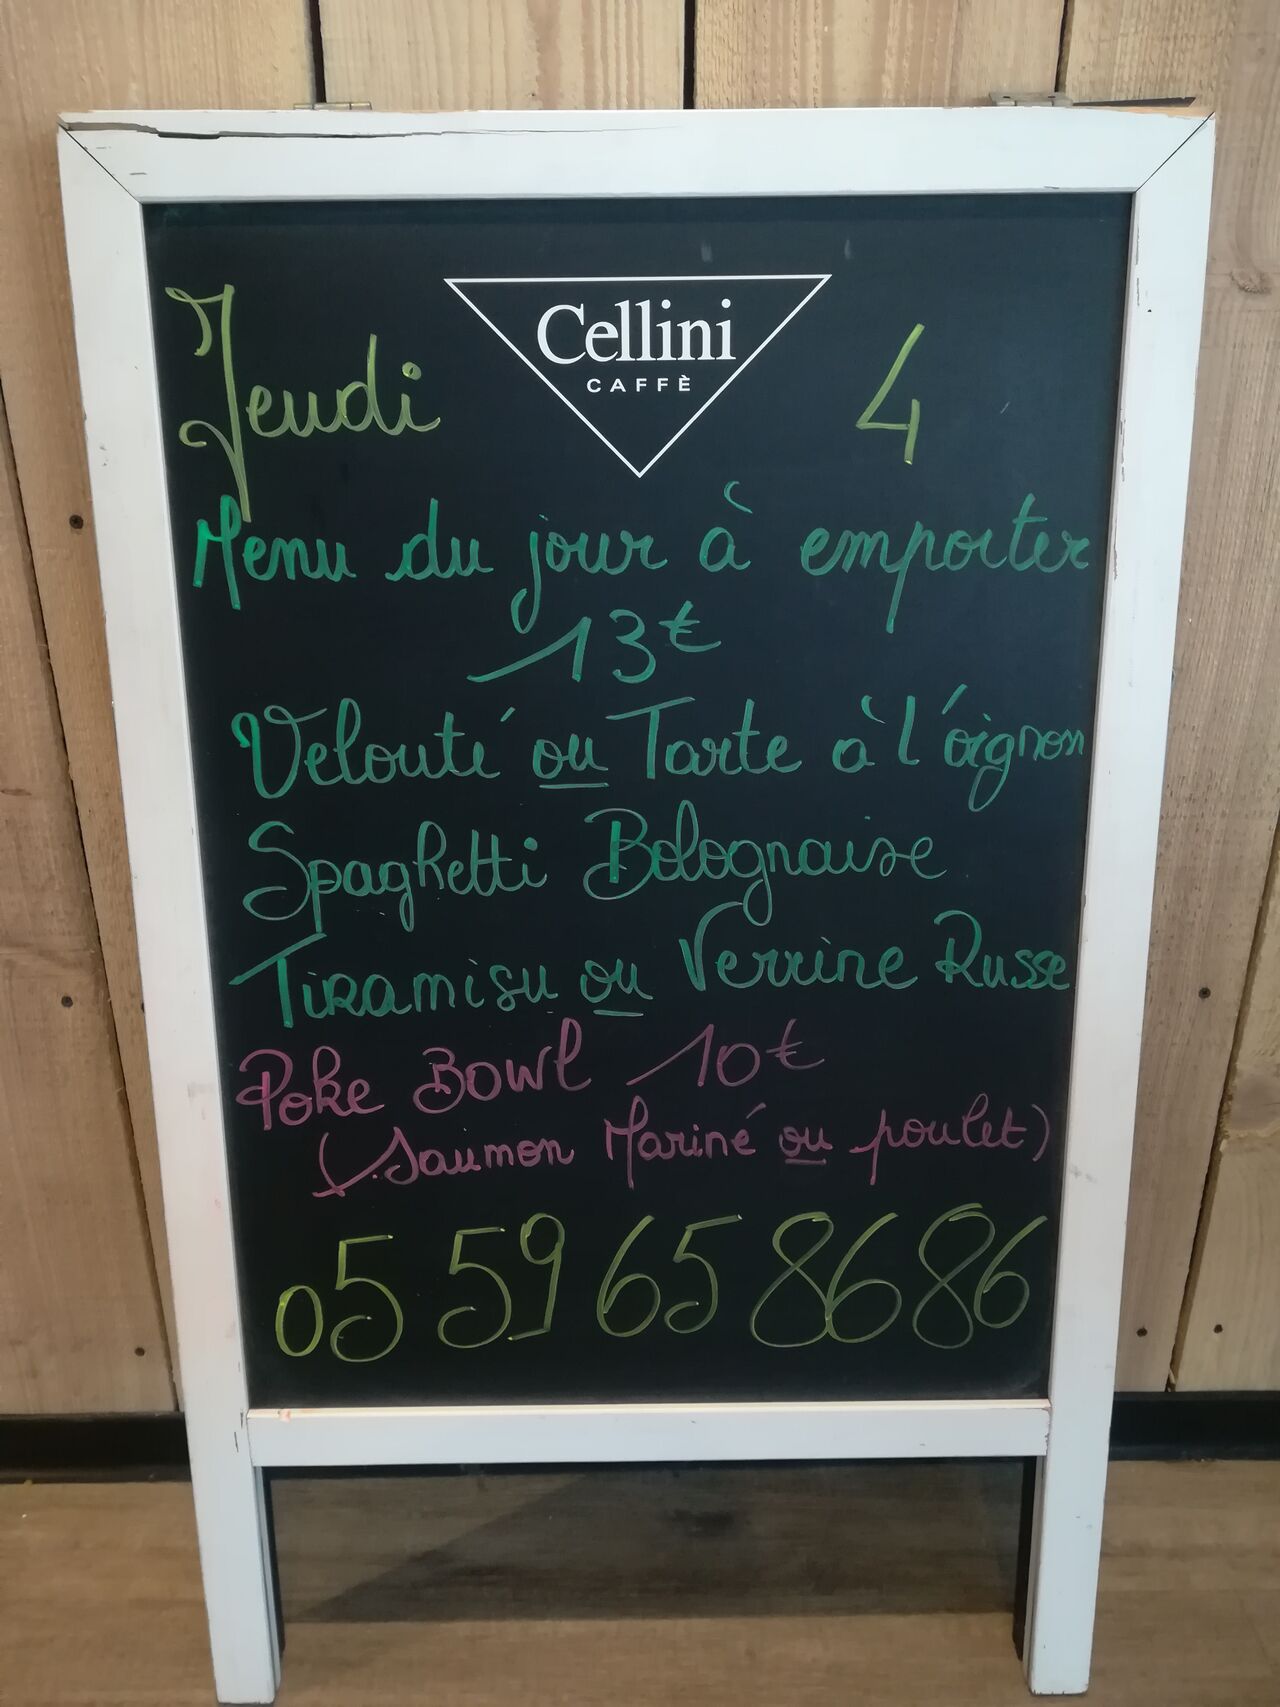 Cellini
CAFFÈ
Jeudi 4
Menu du jour à emporter
13€
Velouté ou Tarte à l'oignon
Spaghetti Bolognaise
Tiramisu ou Verrine Russe
Poke Bowl 10€
(Saumon Mariné ou poulet)
05 59 65 86 86